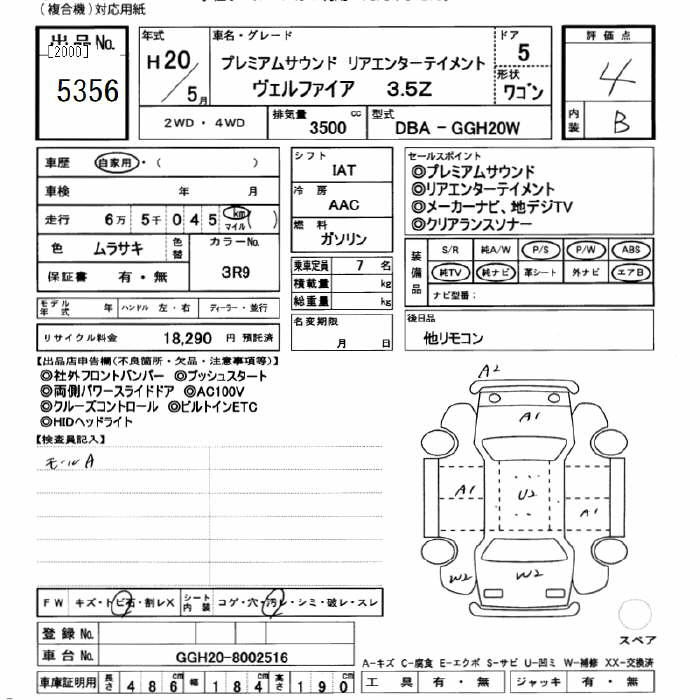 (複合機)対応用紙
出品No.
[2000]
5356
年式
H20/5月
車名・グレード
プレミアムサウンド リアエンターテイメント
ヴェルファイア 3.5Z
ドア
5
形状
ワゴン
2WD・4WD
排気量 3500 cc
型式 DBA-GGH20W
評価点
4
内装 B
車歴 自家用・( )
車検 年 月
走行 6万5千045 km マイル ( )
色 ムラサキ 色替
カラーNo.
3R9
保証書 有・無
モデル年式 年 ハンドル 左・右 ディーラー・並行
リサイクル料金 18,290 円 預託済
シフト
IAT
冷房
AAC
燃料
ガソリン
乗車定員 7 名
積載量 kg
総重量 kg
名変期限
月 日
セールスポイント
◎プレミアムサウンド
◎リアエンターテイメント
◎メーカーナビ、地デジTV
◎クリアランスソナー
装備品
S/R 純A/W P/S P/W ABS
純TV 純ナビ 革シート 外ナビ エアB
ナビ型番:
後日品
他リモコン
【出品店申告欄(不良箇所・欠品・注意事項等)】
◎社外フロントバンパー ◎プッシュスタート
◎両側パワースライドドア ◎AC100V
◎クルーズコントロール ◎ビルトインETC
◎HIDヘッドライト
【検査員記入】
モールA
A2
A1
A1
U2
A1
W2
W2
スペア
FW キズ・トビ石・割レX シート内装 コゲ・穴・汚レ・シミ・破レ・スレ
登録No.
車台No. GGH20-8002516
車庫証明用 長さ 486cm 幅 184cm 高さ 190cm
A-キズ C-腐食 E-エクボ S-サビ U-凹ミ W-補修 XX-交換済
工具 有・無 ジャッキ 有・無